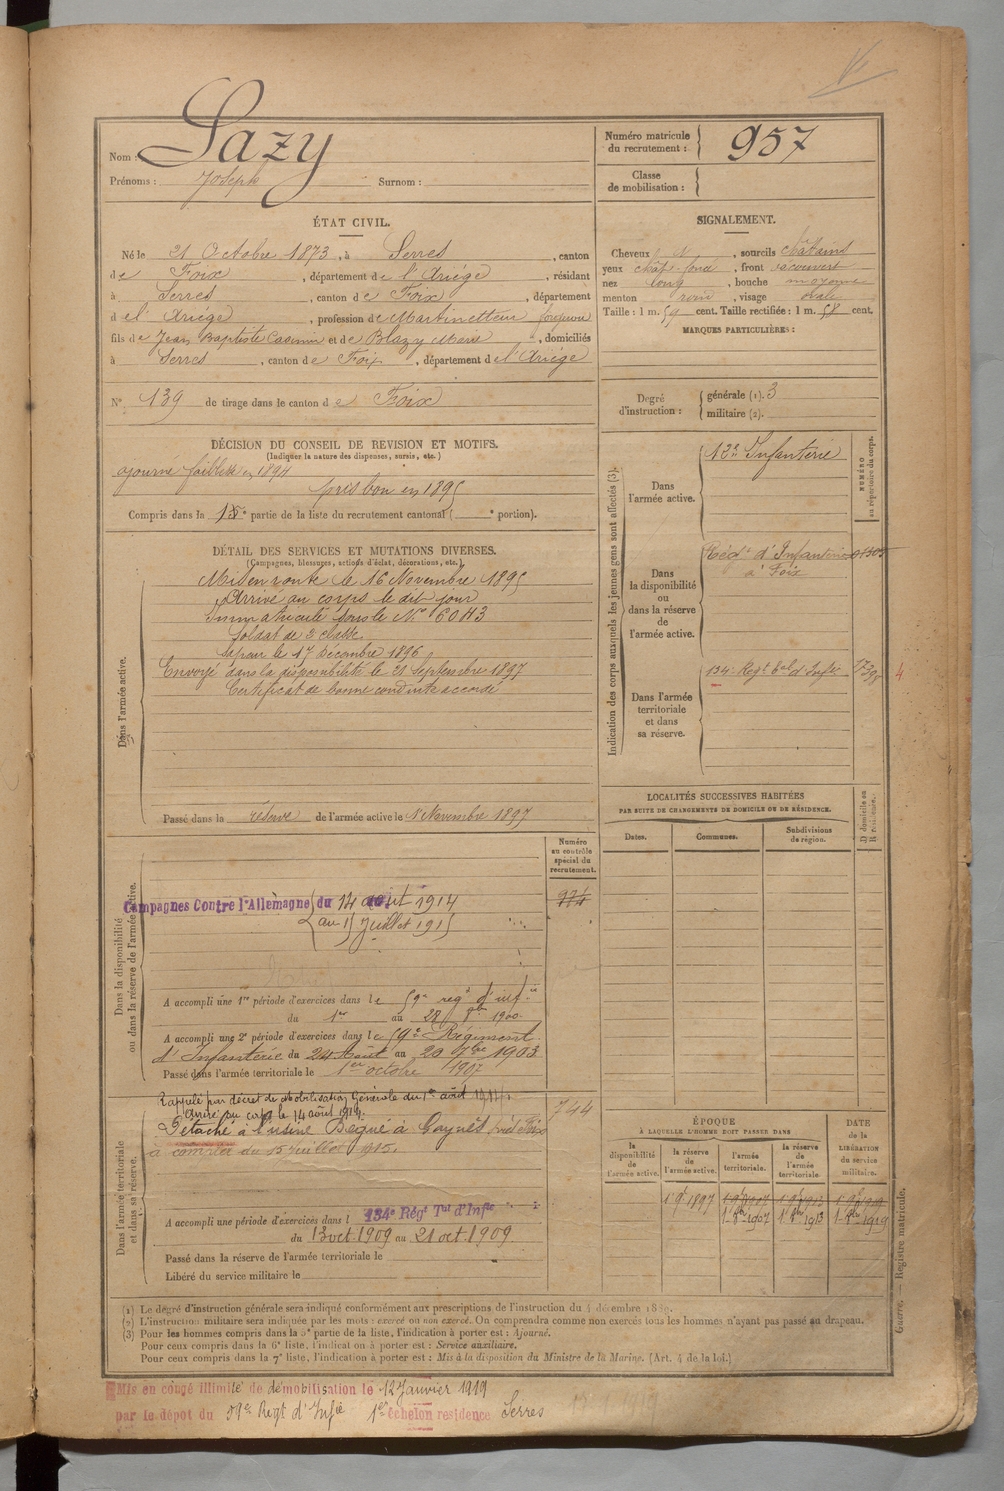 Nom : Lazy
Prénoms : Joseph Surnom :
Numéro matricule
du recrutement : 957
Classe
de mobilisation :
ÉTAT CIVIL.
Né le 21 Octobre 1873, à Serres, canton
de Foix, département de l'Ariége, résidant
à Serres, canton de Foix, département
de l'Ariége, profession de Martinetteur forgeron
fils de Jean Baptiste Casimir et de Blazy Marie, domiciliés
à Serres, canton de Foix, département de l'Ariége
N° 139 de tirage dans le canton de Foix
SIGNALEMENT.
Cheveux, sourcils châtains
yeux chât. foncé, front découvert
nez long, bouche moyenne
menton rond, visage ovale
Taille : 1 m. 59 cent. Taille rectifiée : 1 m. 58 cent.
MARQUES PARTICULIÈRES :
Degré
d'instruction :
générale (1). 3
militaire (2).
DÉCISION DU CONSEIL DE REVISION ET MOTIFS.
(Indiquer la nature des dispenses, sursis, etc.)
ajourné faiblesse en 1894
pris bon en 1895
Compris dans la partie de la liste du recrutement cantonal ( portion).
DÉTAIL DES SERVICES ET MUTATIONS DIVERSES.
(Campagnes, blessures, actions d'éclat, décorations, etc.)
Dans l'armée active.
Mis en route le 16 Novembre 1895
Arrivé au corps le dit jour
Immatriculé sous le N°
Soldat de 2 classe
Sapeur le 17 Décembre 1896
Envoyé dans la disponibilité le 21 Septembre 1897
Certificat de bonne conduite accordé
Passé dans la réserve de l'armée active le 1 Novembre 1897
Indication des corps auxquels les jeunes gens sont affectés (3).
NUMÉRO
au répertoire du corps.
Dans
l'armée active.
Infanterie
Dans
la disponibilité
ou
dans la réserve
de
l'armée active.
Régt d'Infanterie
à Foix
Dans l'armée
territoriale
et dans
sa réserve.
134 Regt Tal d'Infie
4
LOCALITÉS SUCCESSIVES HABITÉES
PAR SUITE DE CHANGEMENTS DE DOMICILE OU DE RÉSIDENCE.
Dates. Communes. Subdivisions
de région.
D domicile ou
R résidence.
Numéro
au contrôle
spécial du
recrutement.
Dans la disponibilité
ou dans la réserve de l'armée active.
Campagnes Contre l'Allemagne du 14 août 1914
au 15 Juillet 1915
A accompli une 1re période d'exercices dans le 59e regt d'inf.ie
du 1er au 28 1900.
A accompli une 2e période d'exercices dans le 59e Régiment
d'Infanterie du 24 Août au 20 7bre 1903
Passé dans l'armée territoriale le 1er octobre 1907
Dans l'armée territoriale
et dans sa réserve.
Rappelé par décret de Mobilisation Générale du 1er août 1914
Arrivé au corps le 14 août 1914.
744
Détaché à l'usine Bégué à près Foix
à compter du 15 Juillet 1915.
A accompli une période d'exercices dans l 134e Régt Tal d'Infie
du 13 oct 1909 au 21 oct 1909
Passé dans la réserve de l'armée territoriale le
Libéré du service militaire le
ÉPOQUE
À LAQUELLE L'HOMME DOIT PASSER DANS
DATE
de la
LIBÉRATION
du service
militaire.
la
disponibilité
de
l'armée active.
la réserve
de
l'armée active.
l'armée
territoriale.
la réserve
de
l'armée
territoriale.
(1) Le degré d'instruction générale sera indiqué conformément aux prescriptions de l'instruction du 4 décembre 1889.
(2) L'instruction militaire sera indiquée par les mots : exercé ou non exercé. On comprendra comme non exercés tous les hommes n'ayant pas passé au drapeau.
(3) Pour les hommes compris dans la 5e partie de la liste, l'indication à porter est : Ajourné.
Pour ceux compris dans la 6e liste, l'indication à porter est : Service auxiliaire.
Pour ceux compris dans la 7e liste, l'indication à porter est : Mis à la disposition du Ministre de la Marine. (Art. 4 de la loi.)
Guerre. — Registre matricule.
Mis en congé illimité de démobilisation le 12 Janvier 1919
par le dépôt du 59e Regt d'Infie 1er échelon residence Serres